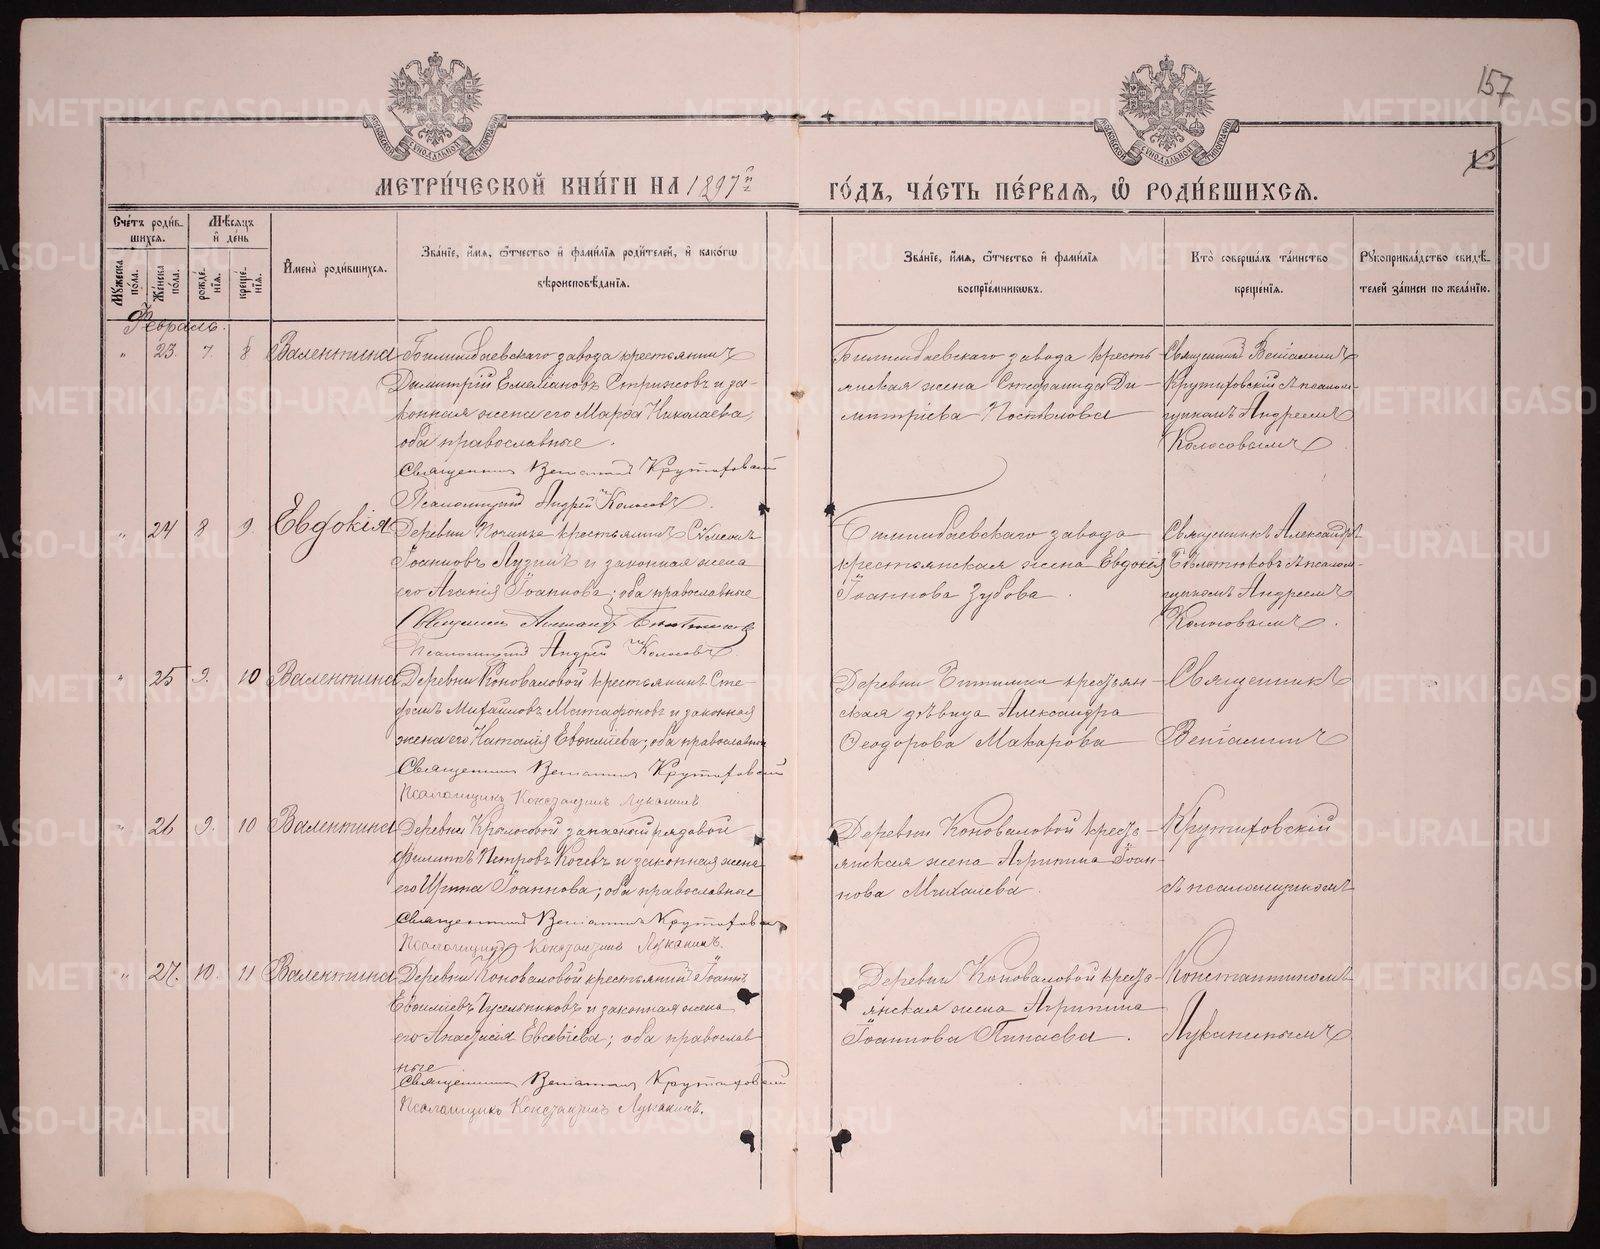 157
12
МЕТРИ́ЧЕСКОЙ КНИ́ГИ НА 1897й
ГО́ДЪ, ЧА́СТЬ ПЕ́РВАЯ, Ѽ РОДИ́ВШИХСЯ.
Сче́тъ роди́в-
шихся.
Мѣ́сяцъ
и҆ де́нь
Мꙋ́жеска по́ла.
Же́нска по́ла.
рожде́-
нїѧ.
креще́-
нїѧ.
И҆мена̀ роди́вшихся.
Зва́нїе, и҆́мѧ, ѻ҆́тчество и҆ фами́лїѧ роди́телей, и҆ како́гѡ
вѣроисповѣ́данїѧ.
Зва́нїе, и҆́мѧ, ѻ҆́тчество и҆ фами́лїѧ
воспрїе́мникѡвъ.
Кто̀ соверша́лъ та́инство
креще́нїѧ.
Рꙋкоприкла́дство свидѣ́-
телей за́писи по жела́нїю.
Февраль.
" 23. 7. 8 Валентина
Билимбаевскаго завода крестьянинъ
Димитрій Емеліановъ Стрижовъ и за-
конная жена его Марѳа Николаева,
оба православные.
Священникъ Веніаминъ Крутиховскій
Псаломщикъ Андрей Колосовъ.
Билимбаевскаго завода кресть-
янская жена Стефанида Ди-
митріева Поспѣлова
Священникъ Веніаминъ
Крутиховскій съ псалом-
щикомъ Андреемъ
Колосовымъ
" 24 8 9. Евдокія
Деревни Починка крестьянинъ Симеонъ
Іоанновъ Лузинъ и законная жена
его Агапія Іоаннова; оба православные
Священникъ Александръ
Псаломщикъ Андрей Колосовъ
Билимбаевскаго завода
крестьянская жена Евдокія
Іоаннова Зубова.
Священникъ Александръ
съ псалом-
щикомъ Андреемъ
Колосовымъ.
" 25 9. 10 Валентина
Деревни Коноваловой крестьянинъ Сте-
фанъ Михаиловъ Матафоновъ и законная
жена его Наталія Евѳиміева; оба православные
Священникъ Веніаминъ Крутиховскій
Псаломщикъ Константинъ Луканинъ
Деревни Битимки крестьян-
ская дѣвица Александра
Ѳеодорова Макарова
Священникъ
Веніаминъ
" 26 9. 10 Валентина
Деревни Крылосовой запасный рядовой
Филиппъ Петровъ Кочевъ и законная жена
его Ирина Іоаннова; оба православные
Священникъ Веніаминъ Крутиховскій
Псаломщикъ Константинъ Луканинъ.
Деревни Коноваловой кресть-
янская жена Агрипина Іоан-
нова Михалева.
Крутиховскій
съ псаломщикомъ
" 27. 10. 11 Валентина
Деревни Коноваловой крестьянинъ Іоаннъ
Евѳиміевъ Гусельниковъ и законная жена
его Анастасія Евсевіева; оба православ
ные
Священникъ Веніаминъ Крутиховскій
Псаломщикъ Константинъ Луканинъ.
Деревни Коноваловой кресть-
янская жена Агрипина
Іоаннова Пинаева.
Константиномъ
Луканинымъ
METRIKI.GASO-URAL.RU